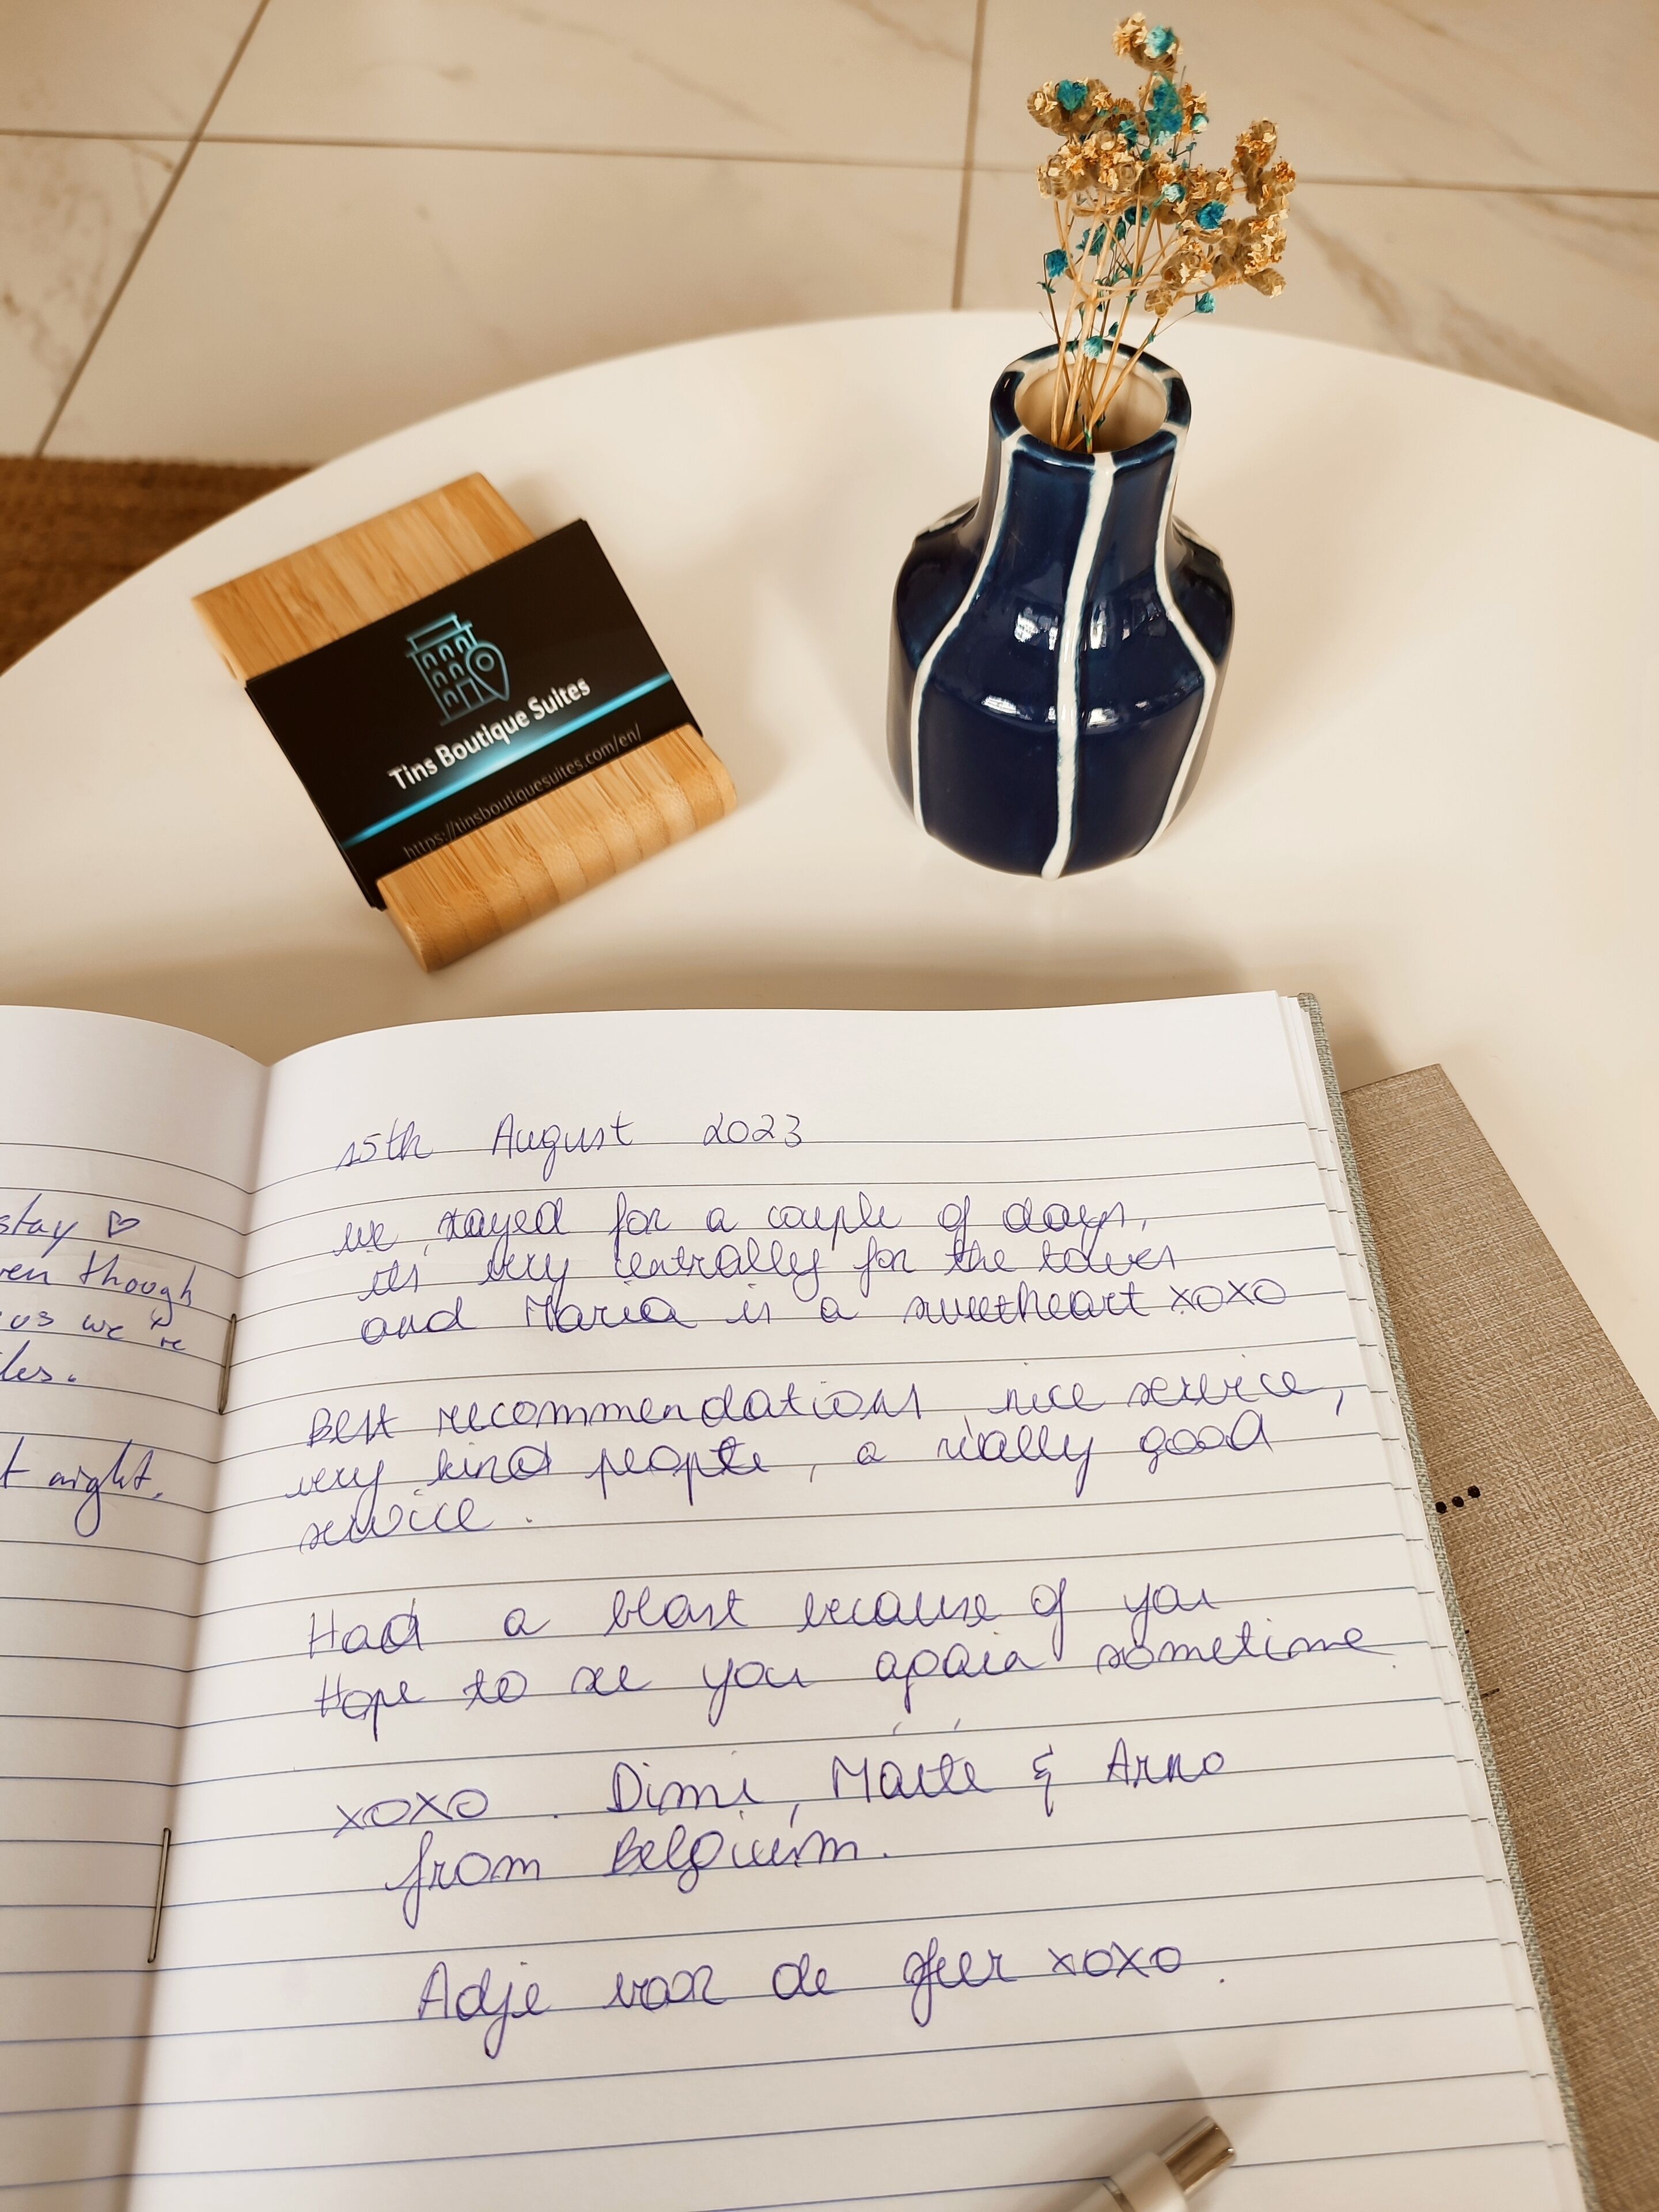 Tins Boutique Suites
https://tinsboutiquesuites.com/en/
stay ♡
ven though
us we're
les.
t night.
15th August 2023
we stayed for a couple of days,
its very centrally for the tower
and Maria is a sweetheart xoxo
Best recommendations, nice service,
very kind people, a really good
service.
Had a blast because of you
Hope to see you again sometime
xoxo. Dimi, Maité & Arno
from Belgium.
Adje van de geer xoxo